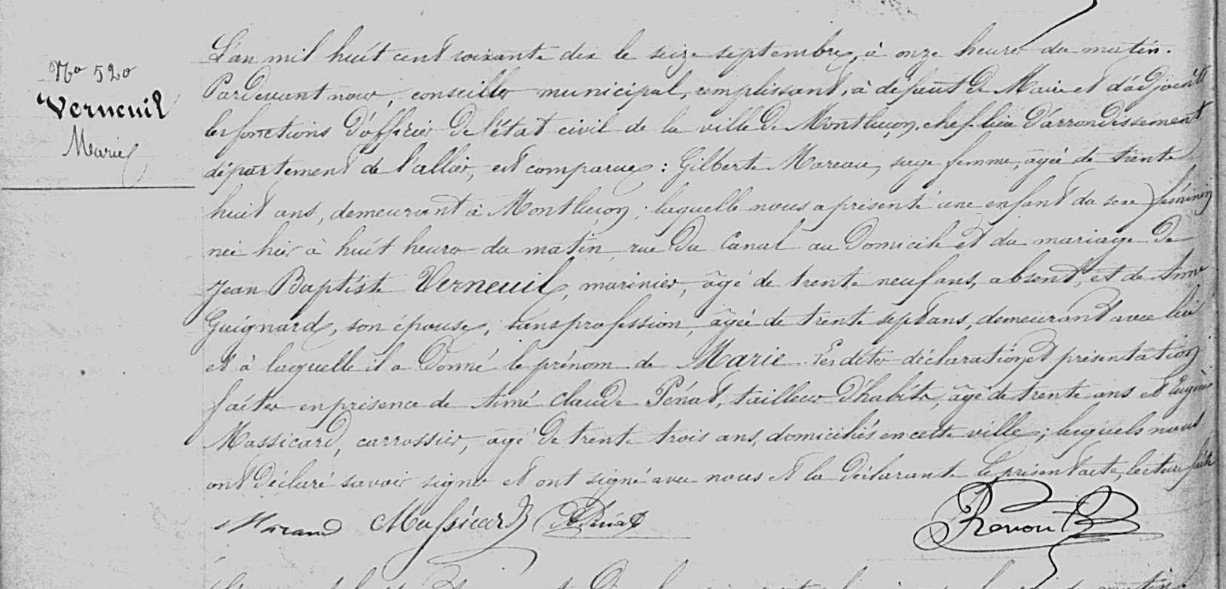 No 520
Verneuil
Marie
L'an mil huit cent soixante dix le seize septembre, à onze heures du matin.
Pardevant nous, conseiller municipal, remplissant, à défaut de Maire et d'adjoints
les fonctions d'officier de l'état civil de la ville de Montluçon, chef-lieu d'arrondissement
département de l'allier, est comparue : Gilberte Moreau, sage femme, âgée de trente
huit ans, demeurant à Montluçon ; laquelle nous a présenté une enfant du sexe féminin
née hier à huit heures du matin, rue du Canal au domicile et du mariage de
Jean Baptiste Verneuil, marinier, âgé de trente neuf ans, absent, et de Anne
Guignard, son épouse, sans profession, âgée de trente sept ans, demeurant avec lui
et à laquelle il a donné le prénom de Marie. Les dites déclaration et présentation
faites en présence de Aimé Claude Pénat, tailleur d'habits, âgé de trente ans et Eugène
Massicard, carrossier, âgé de trente trois ans, domiciliés en cette ville ; lesquels nous
ont déclaré savoir signer et ont signé avec nous et la déclarante le présent acte, lecture faite
Massicard Pénat